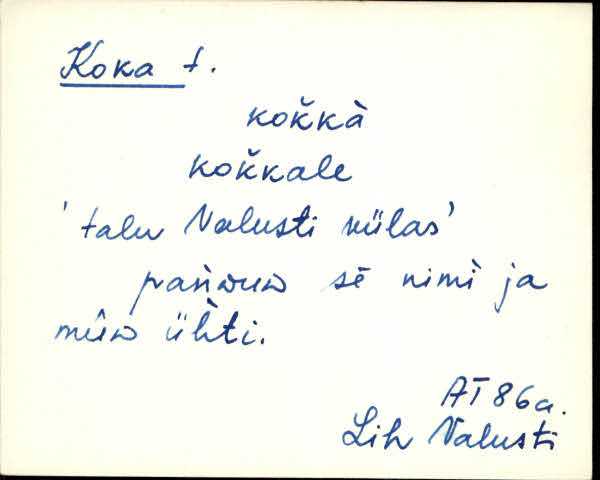 Koka t.
kok̆kà
kok̆kale
'talu Valusti külas'
sē nimì ja
ühti.
AT 86a.
Lih Valusti